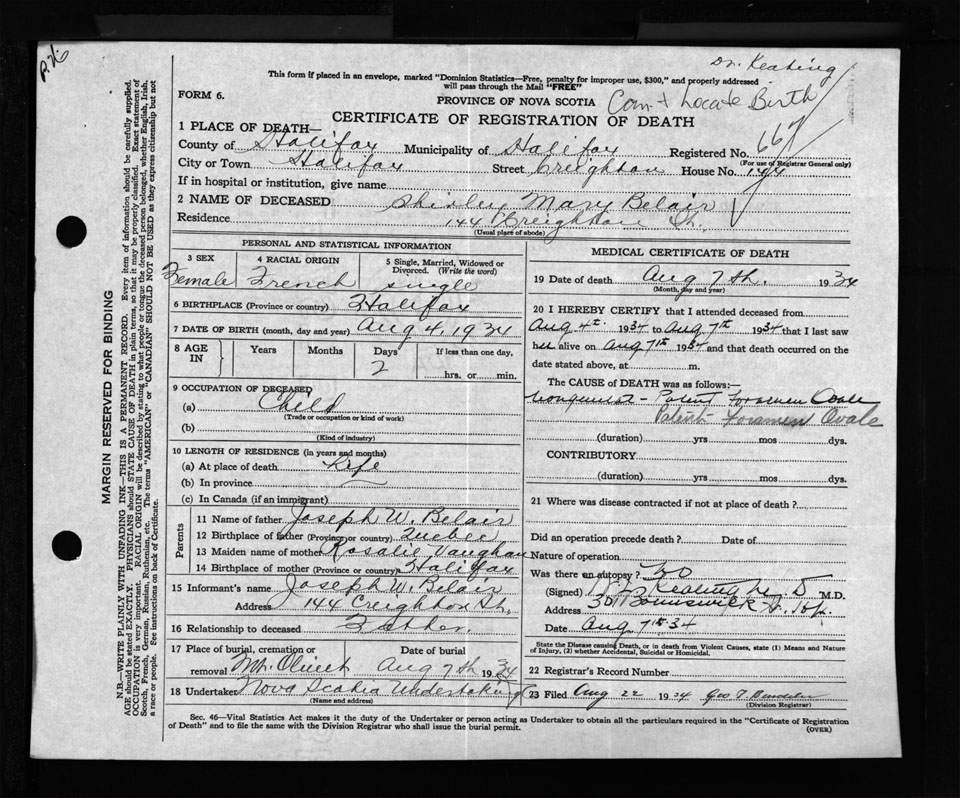 Dr. Keating
This form if placed in an envelope, marked "Dominion Statistics—Free, penalty for improper use, $300," and properly addressed
will pass through the Mail "FREE"
FORM 6.
PROVINCE OF NOVA SCOTIA
Locate Birth
CERTIFICATE OF REGISTRATION OF DEATH
1 PLACE OF DEATH—
County of Halifax Municipality of Halifax Registered No. 667
(For use of Registrar General only)
City or Town Halifax Street Creighton House No. 144
If in hospital or institution, give name
2 NAME OF DECEASED Shirley Mary Belair
Residence 144 Creighton St.
(Usual place of abode)
PERSONAL AND STATISTICAL INFORMATION
3 SEX 4 RACIAL ORIGIN 5 Single, Married, Widowed or
Divorced. (Write the word)
Female French single
6 BIRTHPLACE (Province or country) Halifax
7 DATE OF BIRTH (month, day and year) Aug 4, 1934
8 AGE IN Years Months Days If less than one day,
2
hrs. or min.
9 OCCUPATION OF DECEASED
(a) Child
(Trade or occupation or kind of work)
(b)
(Kind of industry)
10 LENGTH OF RESIDENCE (in years and months)
(a) At place of death Life
(b) In province
(c) In Canada (if an immigrant)
Parents
11 Name of father Joseph W. Belair
12 Birthplace of father (Province or country) Quebec
13 Maiden name of mother Rosalie Vaughan
14 Birthplace of mother (Province or country) Halifax
15 Informant's name Joseph W. Belair
Address 144 Creighton St.
16 Relationship to deceased Father.
17 Place of burial, cremation or Date of burial
removal Mt. Olivet Aug 7th 1934
18 Undertaker Nova Scotia Undertaking
(Name and address)
MEDICAL CERTIFICATE OF DEATH
19 Date of death Aug 7th. 1934
(Month, day and year)
20 I HEREBY CERTIFY that I attended deceased from
Aug 4th 1934 to Aug 7th 1934 that I last saw
her alive on Aug 7th 1934 and that death occurred on the
date stated above, at m.
The CAUSE of DEATH was as follows:—
Patent Foramen Ovale
Patent Foramen Ovale
(duration) yrs mos dys.
CONTRIBUTORY
(duration) yrs mos dys.
21 Where was disease contracted if not at place of death?
Did an operation precede death? Date of
Nature of operation
Was there an autopsy? No
(Signed) Keating M.D. M.D.
Address Brunswick St. Hfx.
Date Aug 7th 34
State the Disease causing Death, or in death from Violent Causes, state (1) Means and Nature
of Injury, (2) whether Accidental, Suicidal or Homicidal.
22 Registrar's Record Number
23 Filed Aug 22 1934 Geo
(Division Registrar)
Sec. 46—Vital Statistics Act makes it the duty of the Undertaker or person acting as Undertaker to obtain all the particulars required in the "Certificate of Registration
of Death" and to file the same with the Division Registrar who shall issue the burial permit.
(OVER)
MARGIN RESERVED FOR BINDING
N.B.—WRITE PLAINLY WITH UNFADING INK—THIS IS A PERMANENT RECORD. Every item of information should be carefully supplied.
AGE should be stated EXACTLY. PHYSICIANS should STATE CAUSE OF DEATH in plain terms, so that it may be properly classified. Exact statement of
OCCUPATION is very important. RACIAL ORIGIN will be described by stating to what people or tongue the deceased person belonged, whether English, Irish,
Scotch, French, German, Russian, Ruthenian, etc. The terms "AMERICAN" or "CANADIAN" SHOULD NOT BE USED as they express citizenship but not
a race or people. See instructions on back of Certificate.